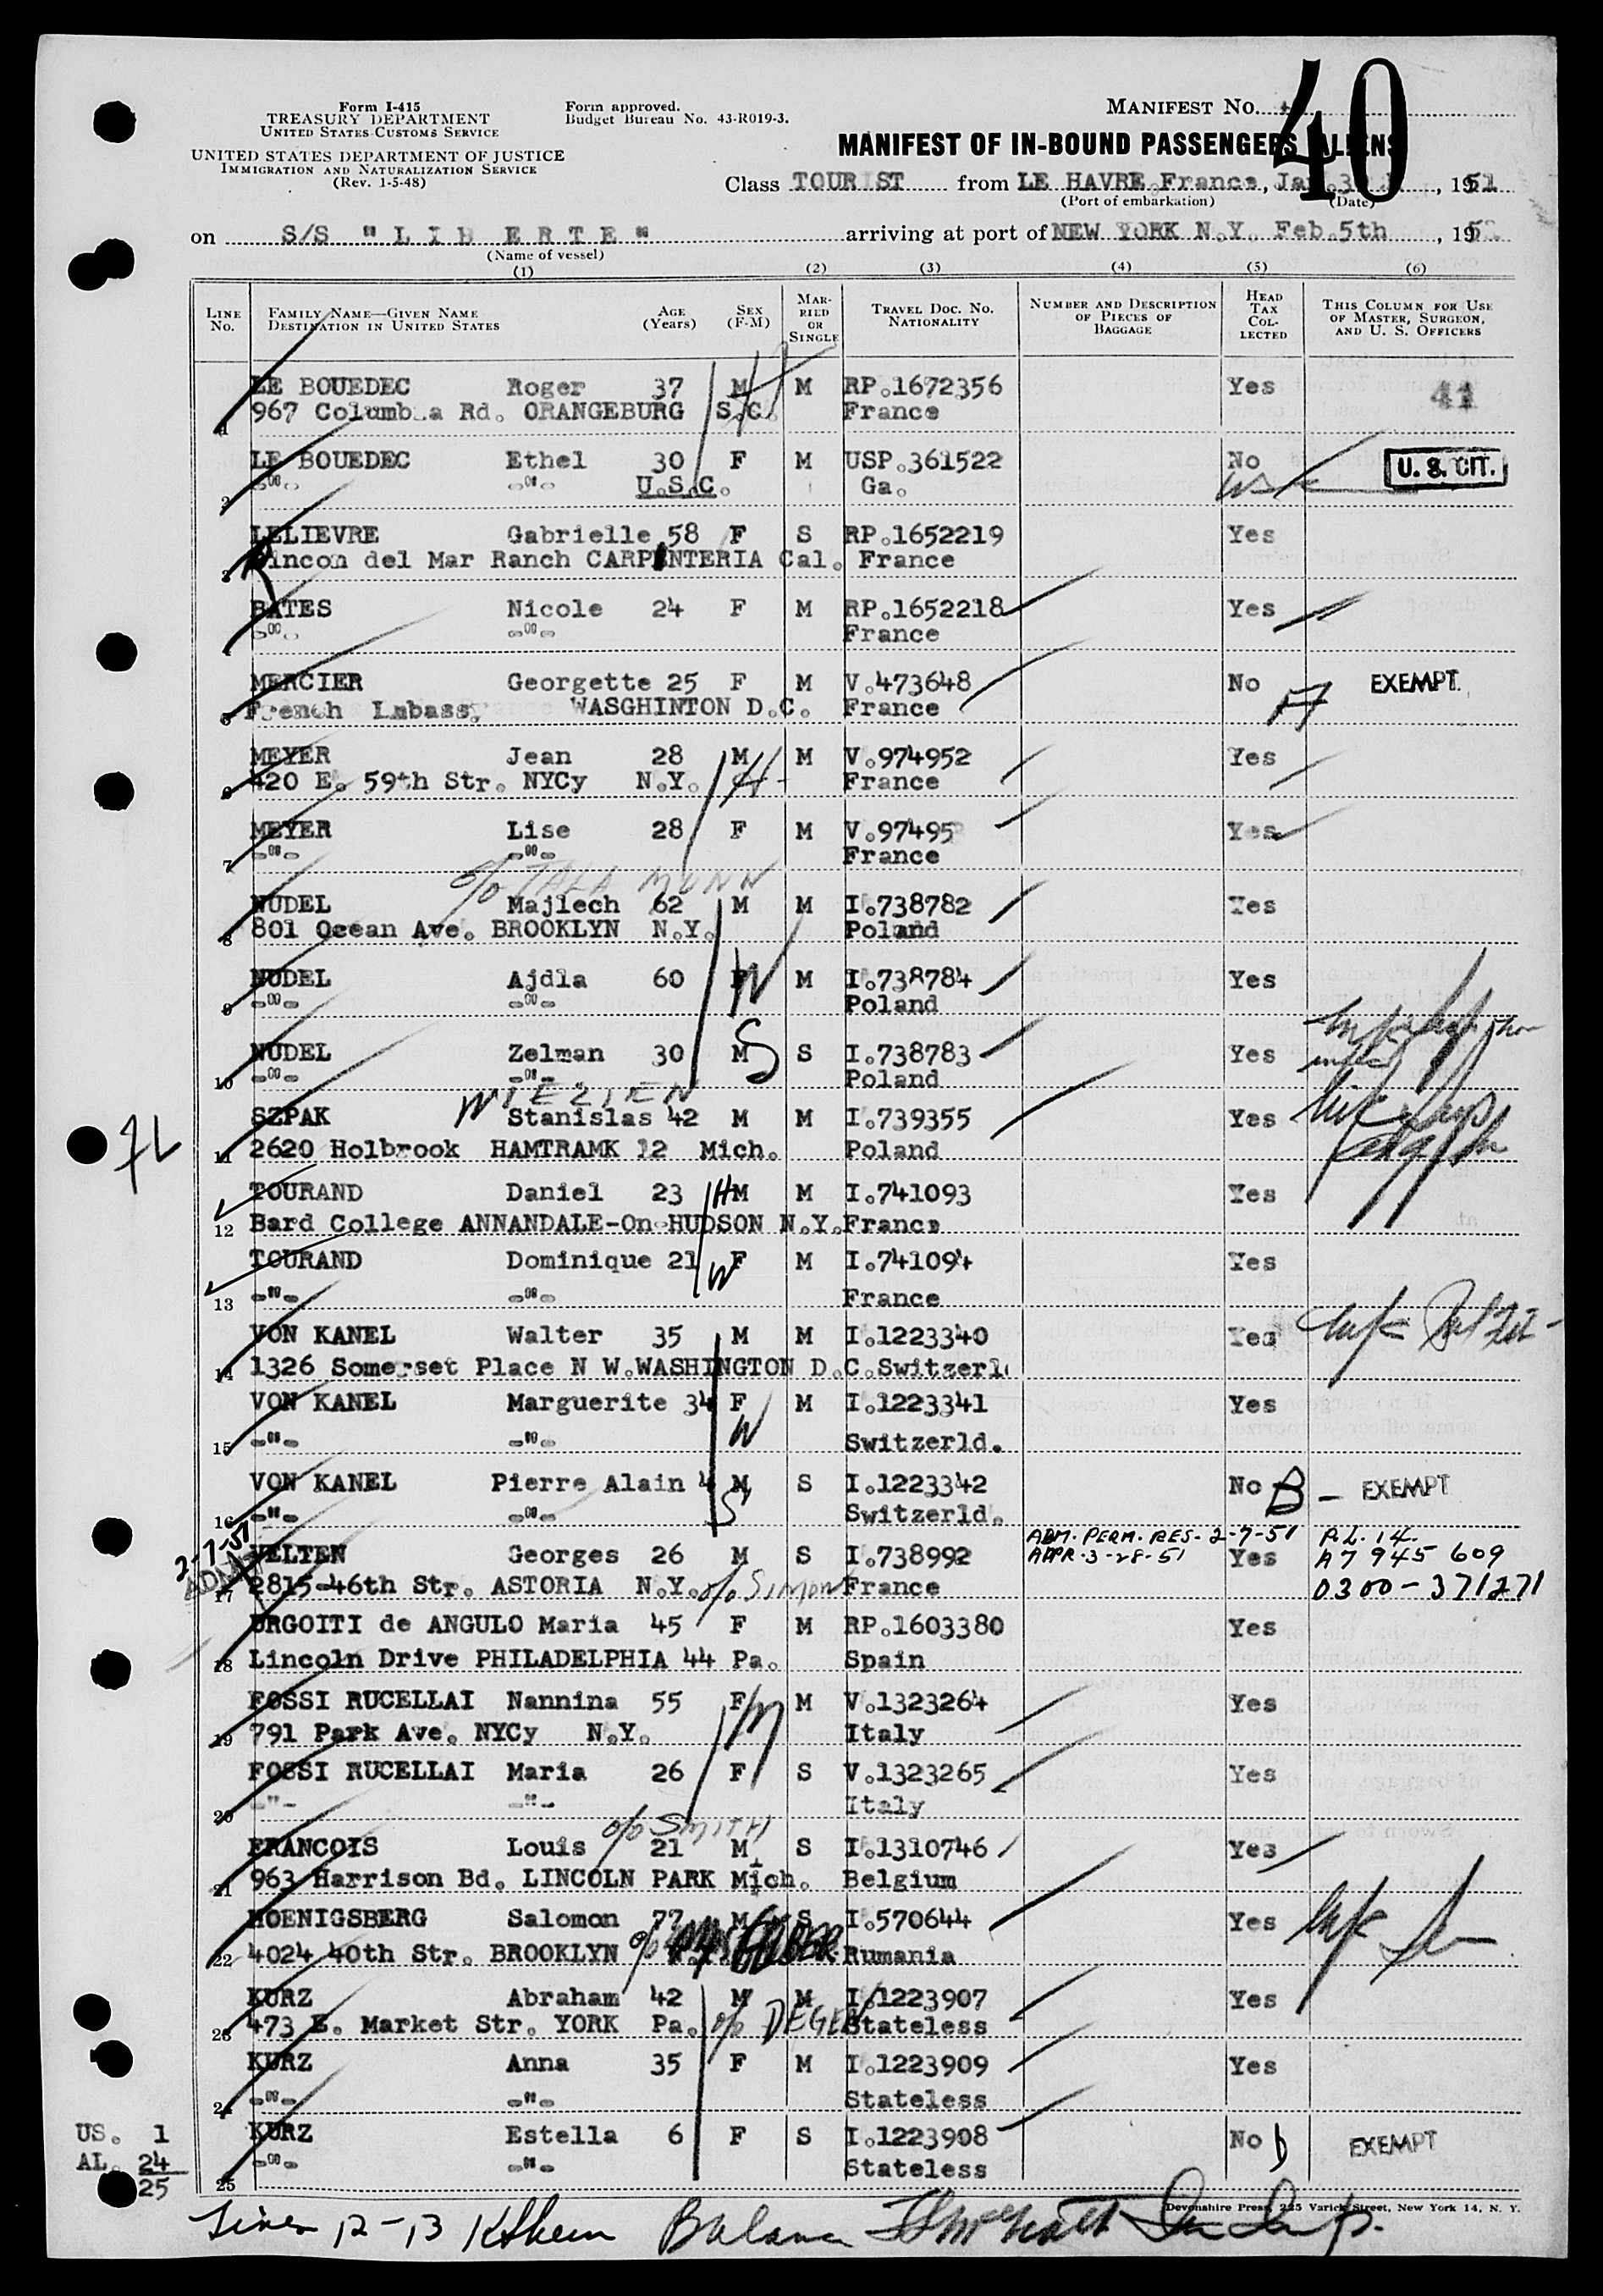 40
Form I-415
TREASURY DEPARTMENT
UNITED STATES CUSTOMS SERVICE
UNITED STATES DEPARTMENT OF JUSTICE
IMMIGRATION AND NATURALIZATION SERVICE
(Rev. 1-5-48)
Form approved.
Budget Bureau No. 43-R019-3.
MANIFEST NO.
MANIFEST OF IN-BOUND PASSENGERS (ALIENS)
Class TOURIST from LE HAVRE France, Jan. , 1951
(Port of embarkation) (Date)
on S/S "L I B E R T E" arriving at port of NEW YORK N.Y. Feb.5th , 195
(Name of vessel)
(1) (2) (3) (4) (5) (6)
LINE NO. FAMILY NAME—GIVEN NAME DESTINATION IN UNITED STATES AGE (YEARS) SEX (F-M) MARRIED OR SINGLE TRAVEL DOC. NO. NATIONALITY NUMBER AND DESCRIPTION OF PIECES OF BAGGAGE HEAD TAX COLLECTED THIS COLUMN FOR USE OF MASTER, SURGEON, AND U. S. OFFICERS
LE BOUEDEC Roger 37 M M RP.1672356 Yes 41
1 967 Columb a Rd. ORANGEBURG S.C. France
LE BOUEDEC Ethel 30 F M USP.361522 No U. S. CIT.
2 -"- -"- U.S.C. Ga.
LELIEVRE Gabrielle 58 F S RP.1652219 Yes
3 Rincon del Mar Ranch CARPENTERIA Cal. France
BATES Nicole 24 F M RP.1652218 Yes
4 -"- -"- France
MERCIER Georgette 25 F M V.473648 No EXEMPT.
5 French Embassy WASGHINTON D.C. France
MEYER Jean 28 M M V.974952 Yes
6 420 E. 59th Str. NYCy N.Y. France
MEYER Lise 28 F M V.97495 Yes
7 -"- -"- France
c/o MUNN
NUDEL Majlech 62 M M I.738782 Yes
8 801 Ocean Ave. BROOKLYN N.Y. Poland
NUDEL Ajdla 60 F W M I.738784 Yes
9 -"- -"- Poland
NUDEL Zelman 30 M S S I.738783 Yes
10 -"- -"- Poland
SZPAK Stanislas 42 M M I.739355 Yes
11 2620 Holbrook HAMTRAMK 12 Mich. Poland
TOURAND Daniel 23 H M M I.741093 Yes
12 Bard College ANNANDALE-On-HUDSON N.Y. France
TOURAND Dominique 21 F M I.741094 Yes
13 -"- -"- W France
VON KANEL Walter 35 M M I.1223340 Yes
14 1326 Somerset Place N W.WASHINGTON D.C.Switzerl
VON KANEL Marguerite 34 F M I.1223341 Yes
15 -"- -"- W Switzerld.
VON KANEL Pierre Alain 4 M S I.1223342 No B - EXEMPT
16 -"- -"- S Switzerld.
2-7-51 ADM. PERM. RES. 2-7-51 P.L. 14.
VELTEN Georges 26 M S I.738992 APPR. 3-28-51 Yes A7 945 609
17 2815-46th Str. ASTORIA N.Y. c/o SIMON France 0300-371271
URGOITI de ANGULO Maria 45 F M RP.1603380 Yes
18 Lincoln Drive PHILADELPHIA 44 Pa. Spain
FOSSI RUCELLAI Nannina 55 F M V.1323264 Yes
19 791 Park Ave. NYCy N.Y. Italy
FOSSI RUCELLAI Maria 26 F S V.1323265 Yes
20 -"- -"- Italy
c/o SMITH
FRANCOIS Louis 21 M S I.1310746 Yes
21 963 Harrison Bd. LINCOLN PARK Mich. Belgium
HOENIGSBERG Salomon 77 M S I.570644 Yes
22 4024 40th Str. BROOKLYN Rumania
KURZ Abraham 42 M M I.1223907 Yes
23 473 E. Market Str. YORK Pa. c/o DEGEN Stateless
KURZ Anna 35 F M I.1223909 Yes
24 -"- -"- Stateless
KURZ Estella 6 F S I.1223908 No EXEMPT
25 -"- -"- Stateless
US. 1
AL. 24
25
Devonshire Press, 225 Varick Street, New York 14, N. Y.
Lines 12-13 Balance